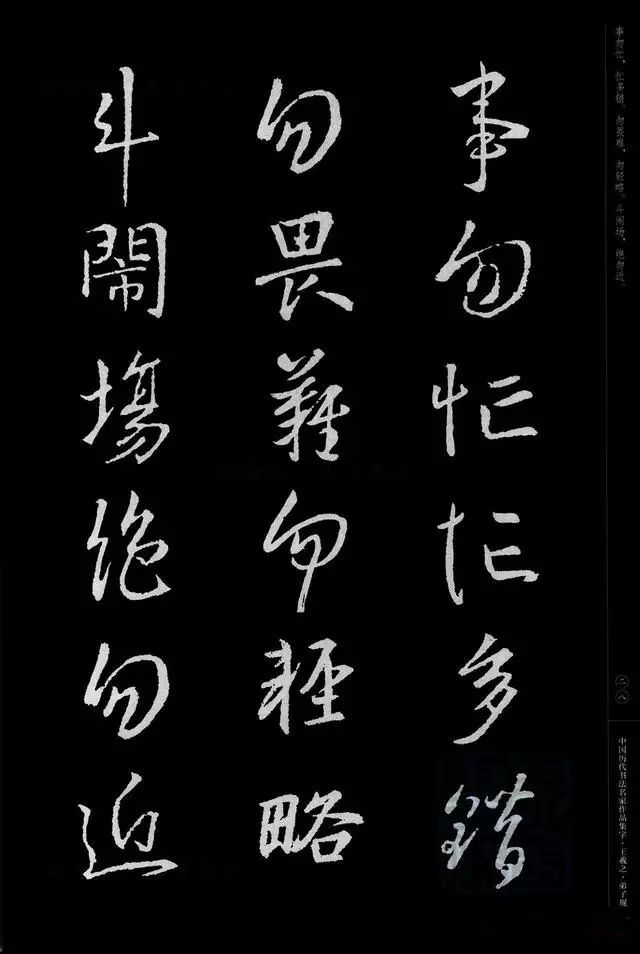 事勿忙忙多錯
勿畏難勿輕略
斗鬧場絶勿近
事勿忙，忙多错。勿畏难，勿轻略。斗闹场，绝勿近。
二八
中国历代书法名家作品集字·王羲之·弟子规